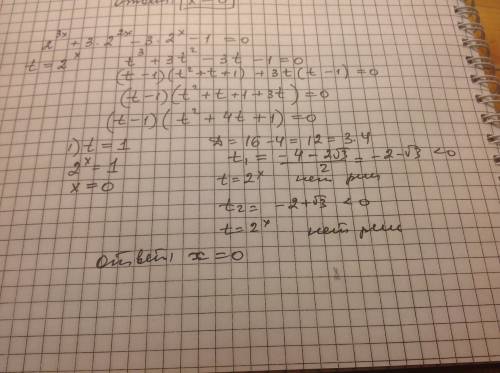 2^{3x} + 3 · 2^{2x} - 3 · 2^x - 1 = 0
t = 2^x t^3 + 3t^2 - 3t - 1 = 0
(t-1)(t^2+t+1) + 3t(t-1) = 0
(t-1)(t^2+t+1+3t) = 0
(t-1)(t^2+4t+1) = 0
1) t = 1 D = 16-4 = 12 = 3·4
2^x = 1 t_1 = \frac{-4-2√3}{2} = -2-√3 < 0
x = 0 t = 2^x нет реш
t_2 = -2+√3 < 0
t = 2^x нет реш
Ответ: x = 0